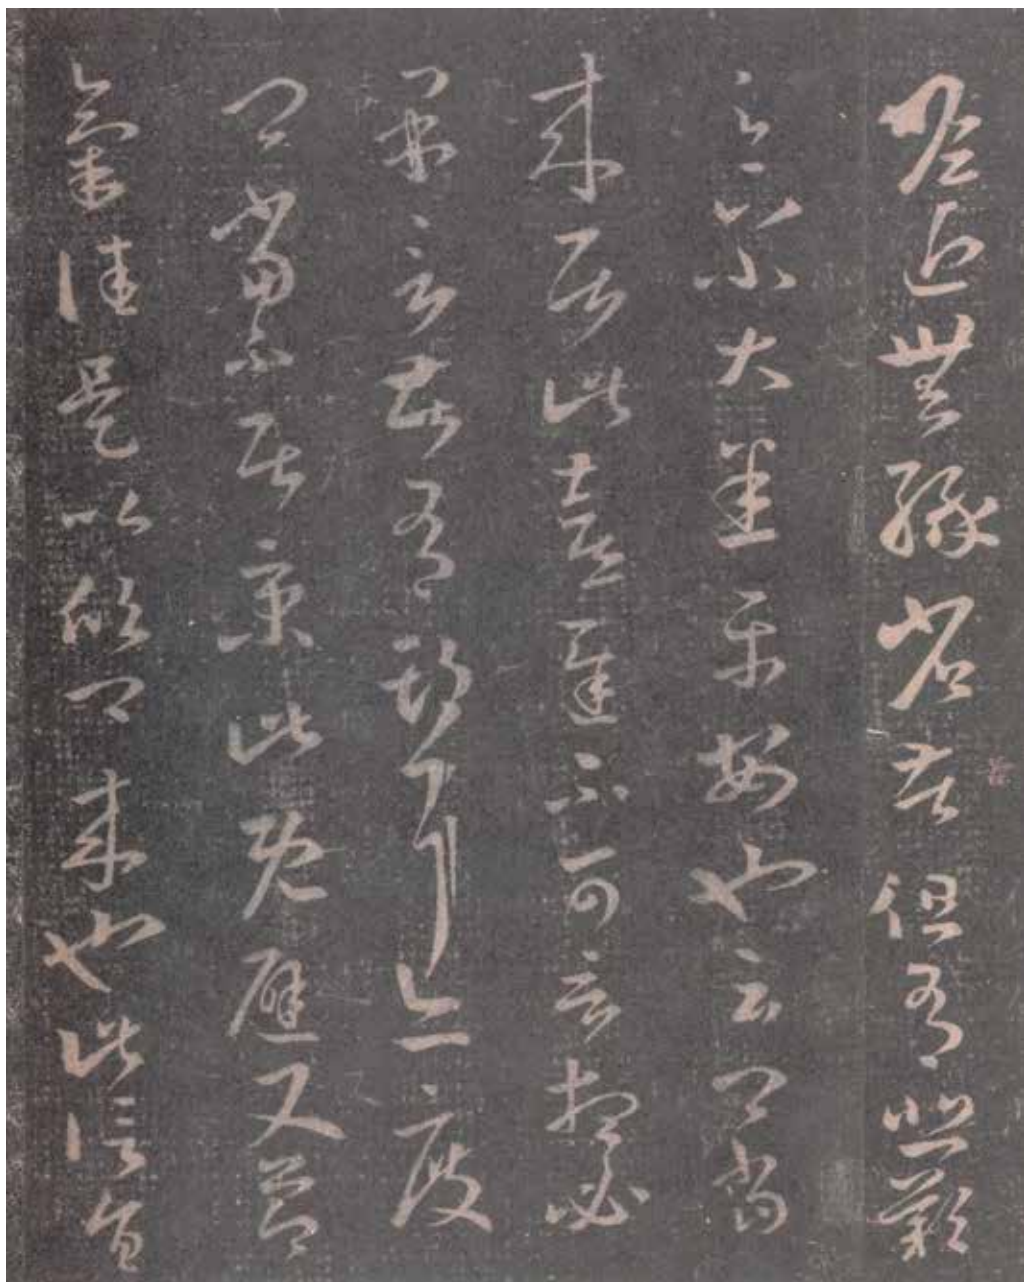 瞻近無緣省苦但有悲歎
足下小大悉平安也云卿當
來居此喜遲不可言想必
果言苦有期耳亦度
卿當不居京此既避又節
氣佳是以欣卿來也此信旨